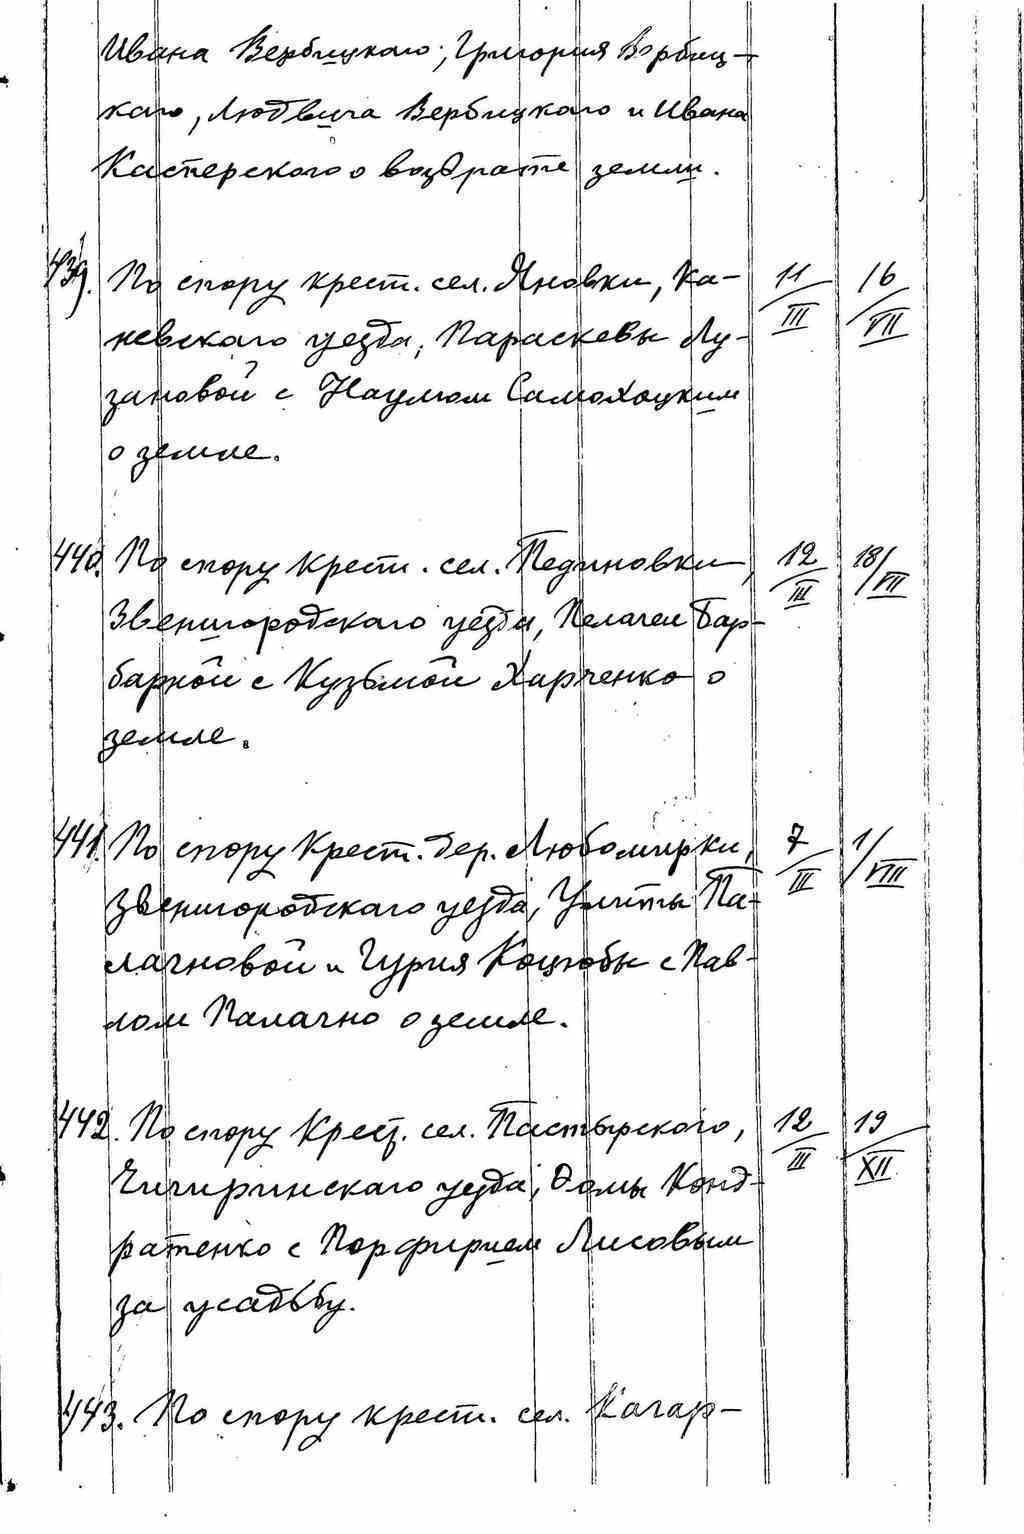 Ивана Вербицкаго; Григория Вербиц-
каго, Людвига Вербицкаго и Ивана
Касперского о возврате земли.
439. По спору крест. сел. Яновки, Ка- 11/III 16/VII
невскаго уезда, Параскевы Лу-
зановой с Наумом Самохоцким
о земле.
440. По спору крест. сел. Пединовки, 12/III 18/VII
Звенигородскаго уезда, Пелагеи Бар-
барной с Кузьмой Харченко о
земле.
441. По спору крест. дер. Любомирки, 7/III 1/VIII
Звенигородскаго уезда, Улиты Па-
лагновой и Гурия Коцюбы с Пав-
лом Палагно о земле.
442. По спору крест. сел. Пастырского, 12/III 19/XII
Чигиринскаго уезда, Домы Конд-
ратенко с Порфирием Лисовым
за усадьбу.
443. По спору крест. сел. Кагар-